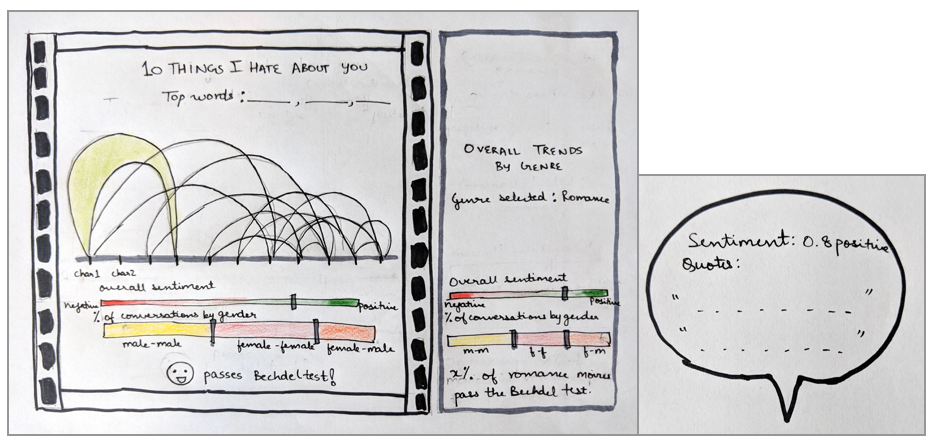 10 THINGS I HATE ABOUT YOU
Top words: ____, ____, ____
char1 char2
overall sentiment
negative positive
% of conversations by gender
male-male female-female female-male
passes Bechdel test!
OVERALL TRENDS
BY GENRE
Genre selected: Romance
Overall sentiment
negative positive
% of conversations by gender
m-m f-f f-m
x% of romance movies
pass the Bechdel test.
Sentiment: 0.8 positive
Quotes:
" - - - - - "
" - - - - - "